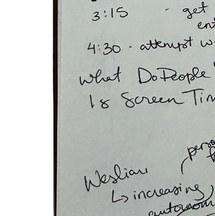 3:15 - get
ent
4:30 - attempt w
What Do People
Is Screen Tim
Weslian
↳ increasing